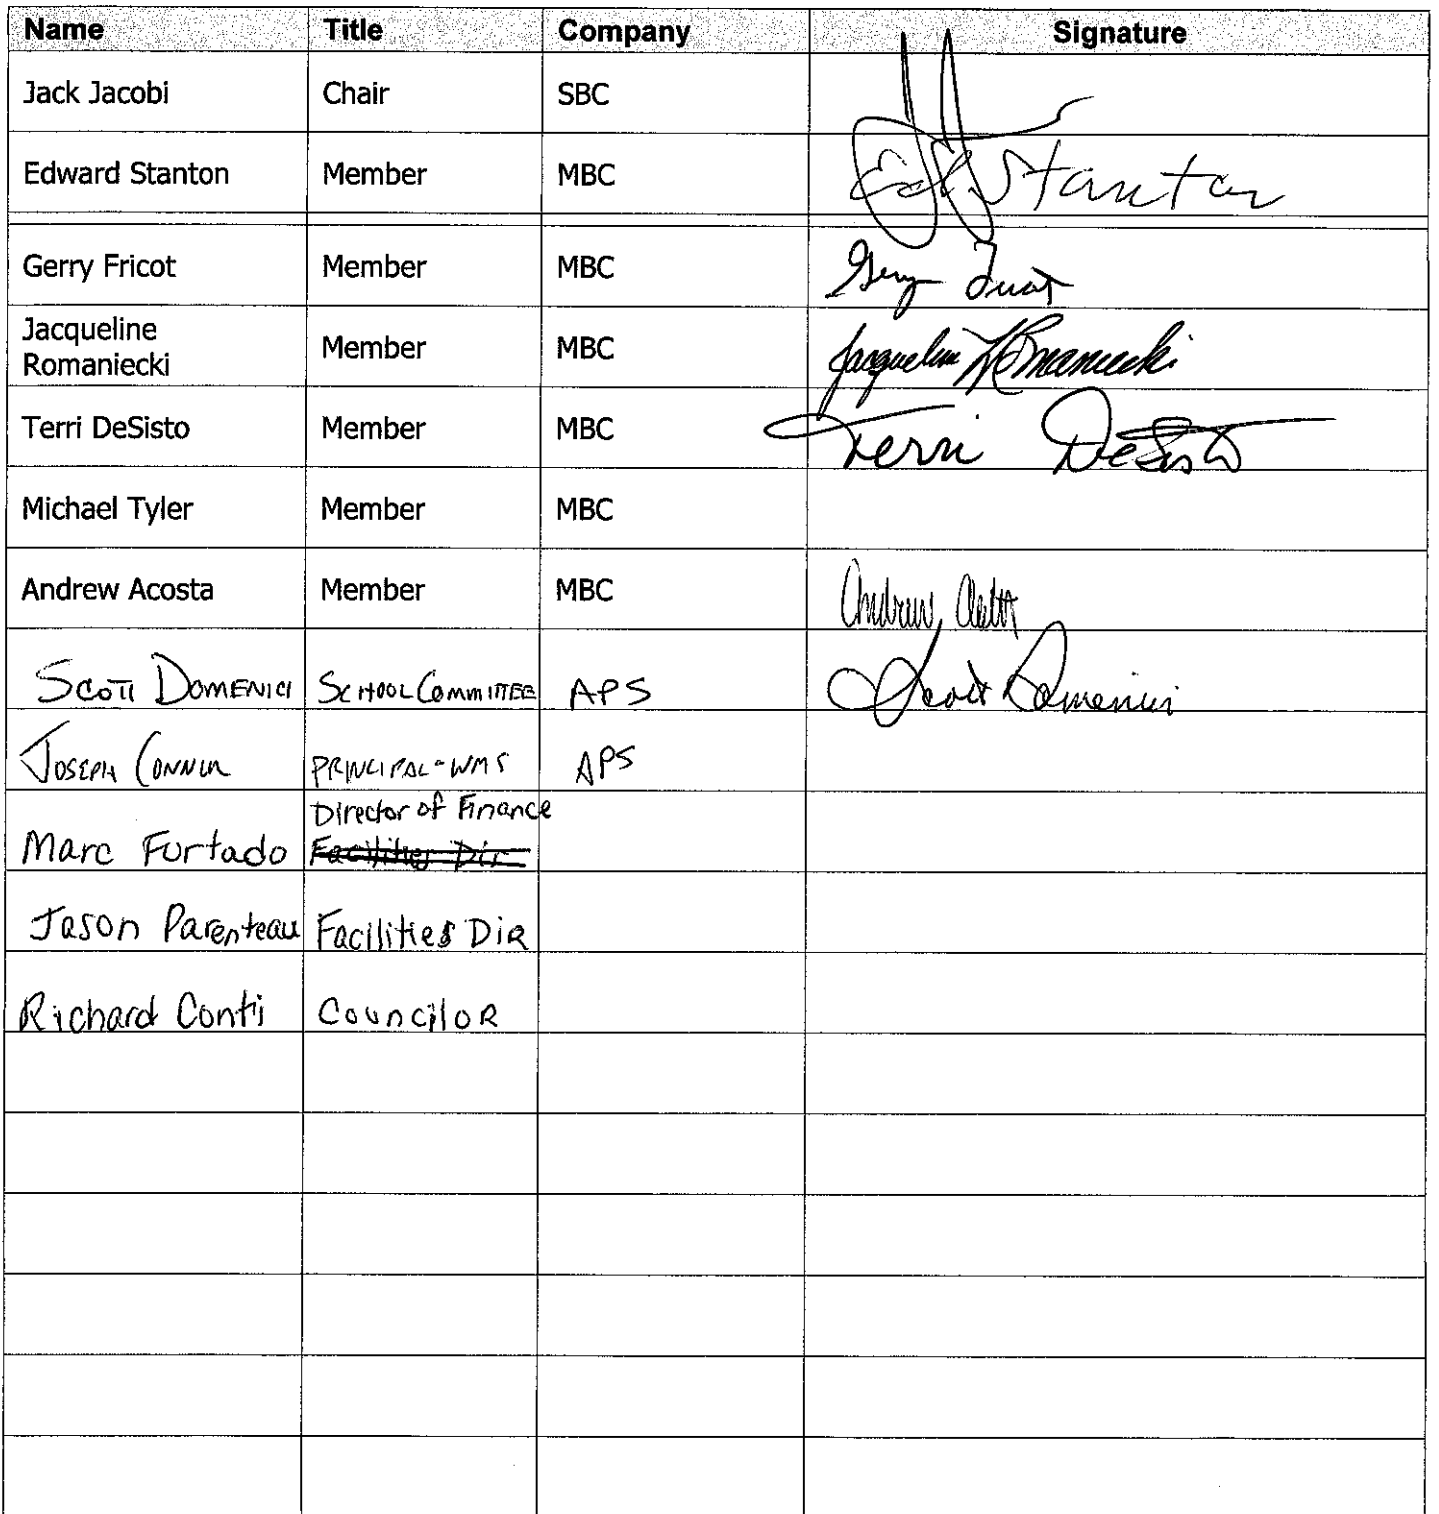 Name Title Company Signature
Jack Jacobi Chair SBC
Edward Stanton Member MBC Ed Stanton
Gerry Fricot Member MBC Gerry Fricot
Jacqueline
Romaniecki Member MBC Jacqueline Romaniecki
Terri DeSisto Member MBC Terri DeSisto
Michael Tyler Member MBC
Andrew Acosta Member MBC Andrew
Scott Domenici School Committee APS Scott Domenici
Joseph Connor Principal-WMS APS
Director of Finance
Marc Furtado Facilities Dir
Jason Parenteau Facilities Dir
Richard Conti Councilor